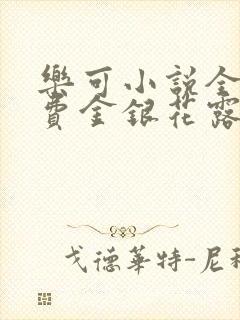 樂可小說全
費金銀花露
戈德華特-尼科